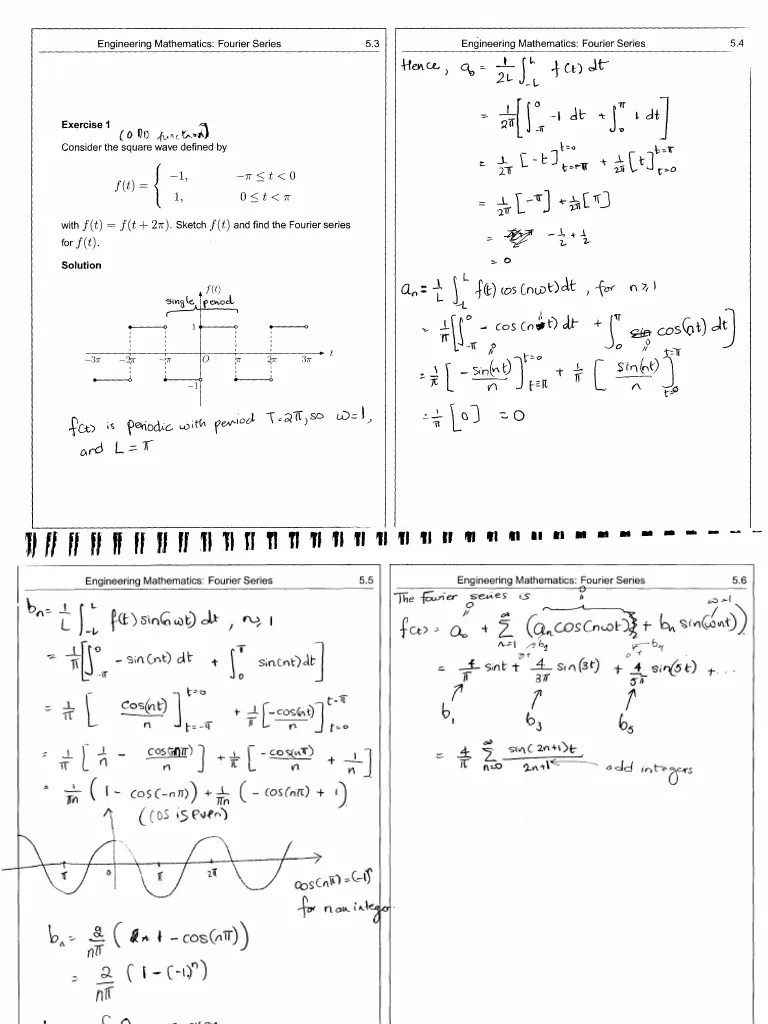 Engineering Mathematics: Fourier Series 5.3
Exercise 1
(ODD function)
Consider the square wave defined by
f(t) = { −1, −π ≤ t < 0
1, 0 ≤ t < π
with f(t) = f(t + 2π). Sketch f(t) and find the Fourier series
for f(t).
Solution
f(t)
single period
1
−3π −2π −π O π 2π 3π t
−1
f(t) is periodic with period T=2π, so ω=1,
and L = π
Engineering Mathematics: Fourier Series 5.4
Hence, a₀ = 1/2L ∫_{-L}^{L} f(t) dt
= 1/2π [∫_{-π}^{0} -1 dt + ∫_{0}^{π} 1 dt]
= 1/2π [-t]_{t=-π}^{t=0} + 1/2π [t]_{t=0}^{t=π}
= 1/2π [-π] + 1/2π [π]
= -1/2 + 1/2
= 0
aₙ = 1/L ∫_{-L}^{L} f(t) cos(nωt) dt, for n ≥ 1
= 1/π [∫_{-π}^{0} - cos(nt) dt + ∫_{0}^{π} cos(nt) dt]
= 1/π [-sin(nt)/n]_{t=-π}^{t=0} + 1/π [sin(nt)/n]_{t=0}^{t=π}
= 1/π [0] = 0
Engineering Mathematics: Fourier Series 5.5
bₙ = 1/L ∫_{-L}^{L} f(t) sin(nωt) dt, n ≥ 1
= 1/π [∫_{-π}^{0} - sin(nt) dt + ∫_{0}^{π} sin(nt) dt]
= 1/π [cos(nt)/n]_{t=-π}^{t=0} + 1/π [-cos(nt)/n]_{t=0}^{t=π}
= 1/π [1/n - cos(-nπ)/n] + 1/π [-cos(nπ)/n + 1/n]
= 1/πn (1 - cos(-nπ)) + 1/πn (-cos(nπ) + 1)
(cos is even)
π 0 π 2π
cos(nπ) = (-1)ⁿ
for n an integer
bₙ = 2/nπ (1 - cos(nπ))
= 2/nπ (1 - (-1)ⁿ)
Engineering Mathematics: Fourier Series 5.6
The fourier series is
0 0 ω=1
f(t) = a₀ + Σ_{n=1}^{∞} (aₙ cos(nωt) + bₙ sin(ωnt))
= 4/π sin t + 4/3π sin(3t) + 4/5π sin(5t) + ...
b₁ b₃ b₅
= 4/π Σ_{n=0}^{∞} sin(2n+1)t / 2n+1 odd integers